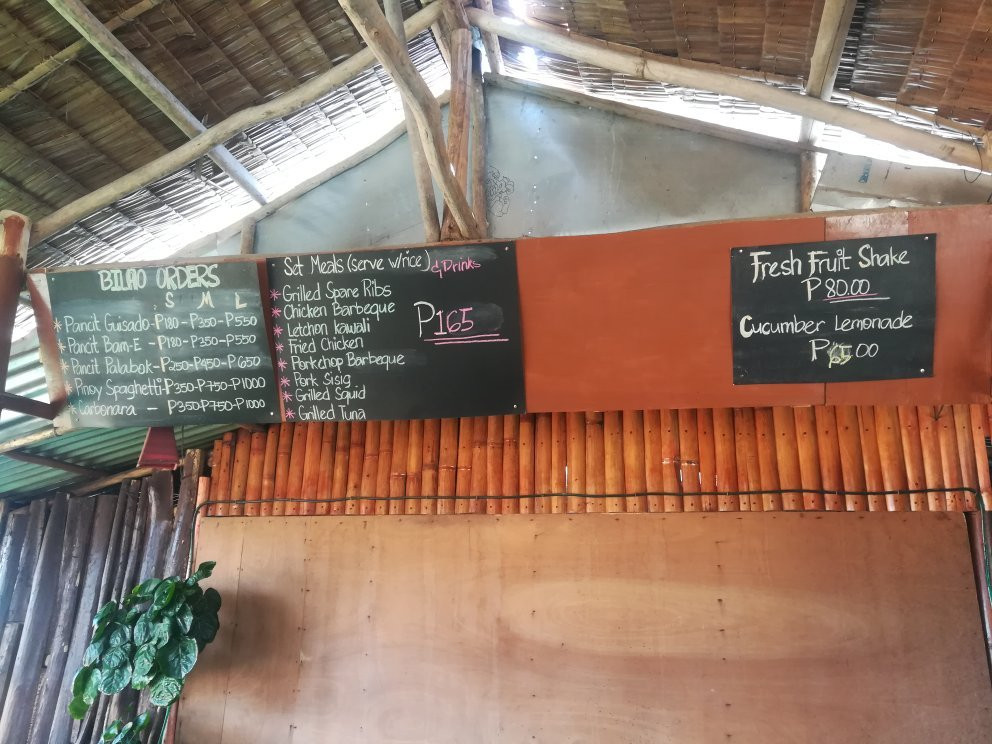 BILAO ORDERS
S M L
* Pancit Guisado - P180 - P350 - P550
* Pancit Bam-E - P180 - P350 - P550
* Pancit Palabok - P250 - P450 - P650
* Pinoy Spaghetti - P350 - P750 - P1000
* Carbonara - P350 - P750 - P1000
Set Meals (serve w/rice) & Drinks
* Grilled Spare Ribs
* Chicken Barbeque
* Letchon Kawali
* Fried Chicken
* Porkchop Barbeque
* Pork Sisig
* Grilled Squid
* Grilled Tuna
P165
Fresh Fruit Shake
P 80.00
Cucumber Lemonade
P65.00